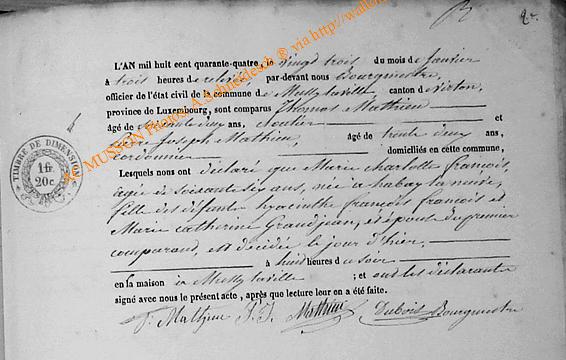 2
L'AN mil huit cent quarante-quatre, le vingt trois du mois de Janvier
à trois heures de relevée par-devant nous Bourgmestre,
officier de l'état civil de la commune de Mussy la ville, canton de Virton,
province de Luxembourg, sont comparus Thomas Mathieu
âgé de soixante deux ans, cloutier et
Pierre Joseph Mathieu, âgé de trente deux ans,
cordonnier domiciliés en cette commune,
Lesquels nous ont déclaré que Marie charlotte françois,
agée de soixante six ans, née à habay la neuve,
fille des défunts hyacinthe françois françois et
Marie catherine Grandjean, et épouse du premier
comparant, est décédée le jour d'hier,
à huit heures du soir
en la maison à Mussy la ville ; et ont les déclarants
signé avec nous le présent acte, après que lecture leur en a été faite.
T. Mathieu P. J. Mathieu Dubois Bourgmestre
TIMBRE DE DIMENSION
1 fr.
20 c.
MUSSON Photos A. Schneider ® via http://wallon